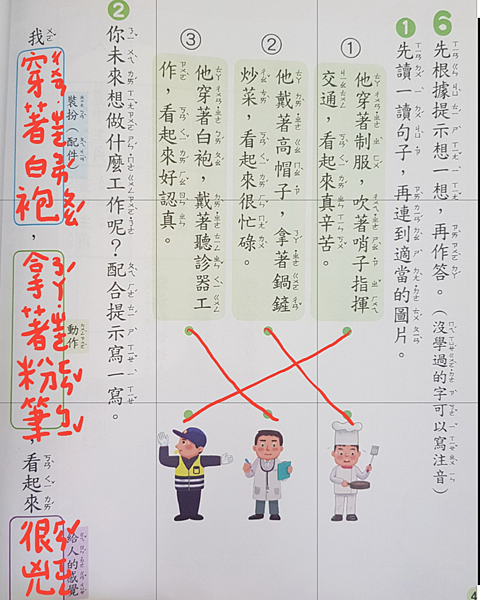 6 先根據提示想一想,再作答。(沒學過的字可以寫注音)
1 先讀一讀句子,再連到適當的圖片。
① 他穿著制服,吹著哨子指揮
交通,看起來真辛苦。
② 他戴著高帽子,拿著鍋鏟
炒菜,看起來很忙碌。
③ 他穿著白袍,戴著聽診器工
作,看起來好認真。
2 你未來想做什麼工作呢?配合提示寫一寫。
裝扮(配件)
動作
給人的感覺
我穿著白袍,拿著粉筆,看起來很兇
4